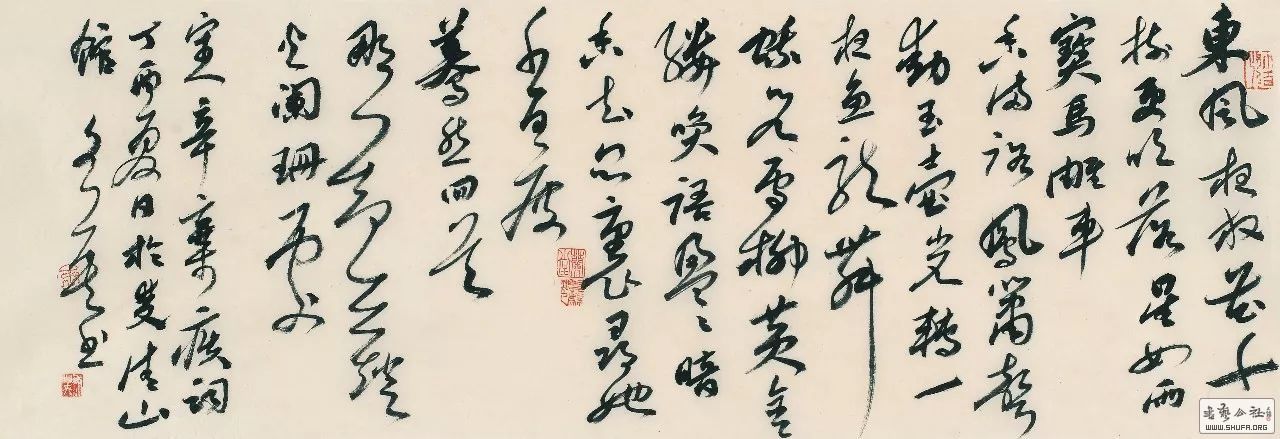 東風夜放花千
樹更吹落星如雨
寶馬雕車
香滿路鳳簫聲
動玉壺光轉一
夜魚龍舞
蛾兒雪柳黃金
縷笑語盈〻暗
香去衆裏尋她
千百度
驀然回首
那人却在燈
火闌珊處
宋辛棄疾詞
丁酉夏日於清山
館書
书艺公社
WWW.SHUFA.ORG